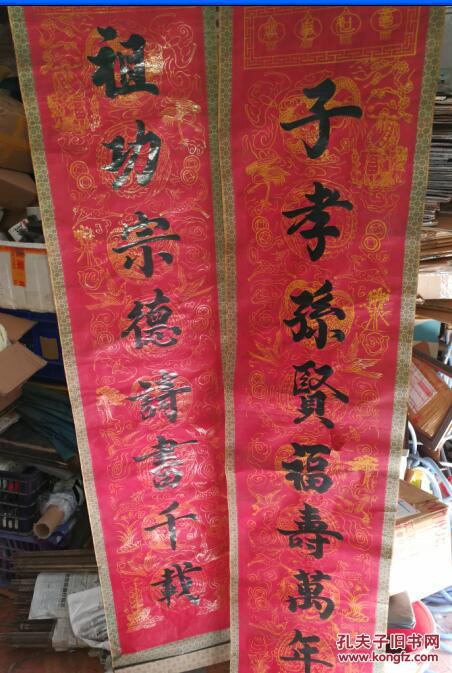 祖功宗德詩書千載
子孝孫賢福壽萬年
孔夫子旧书网
www.kongfz.com